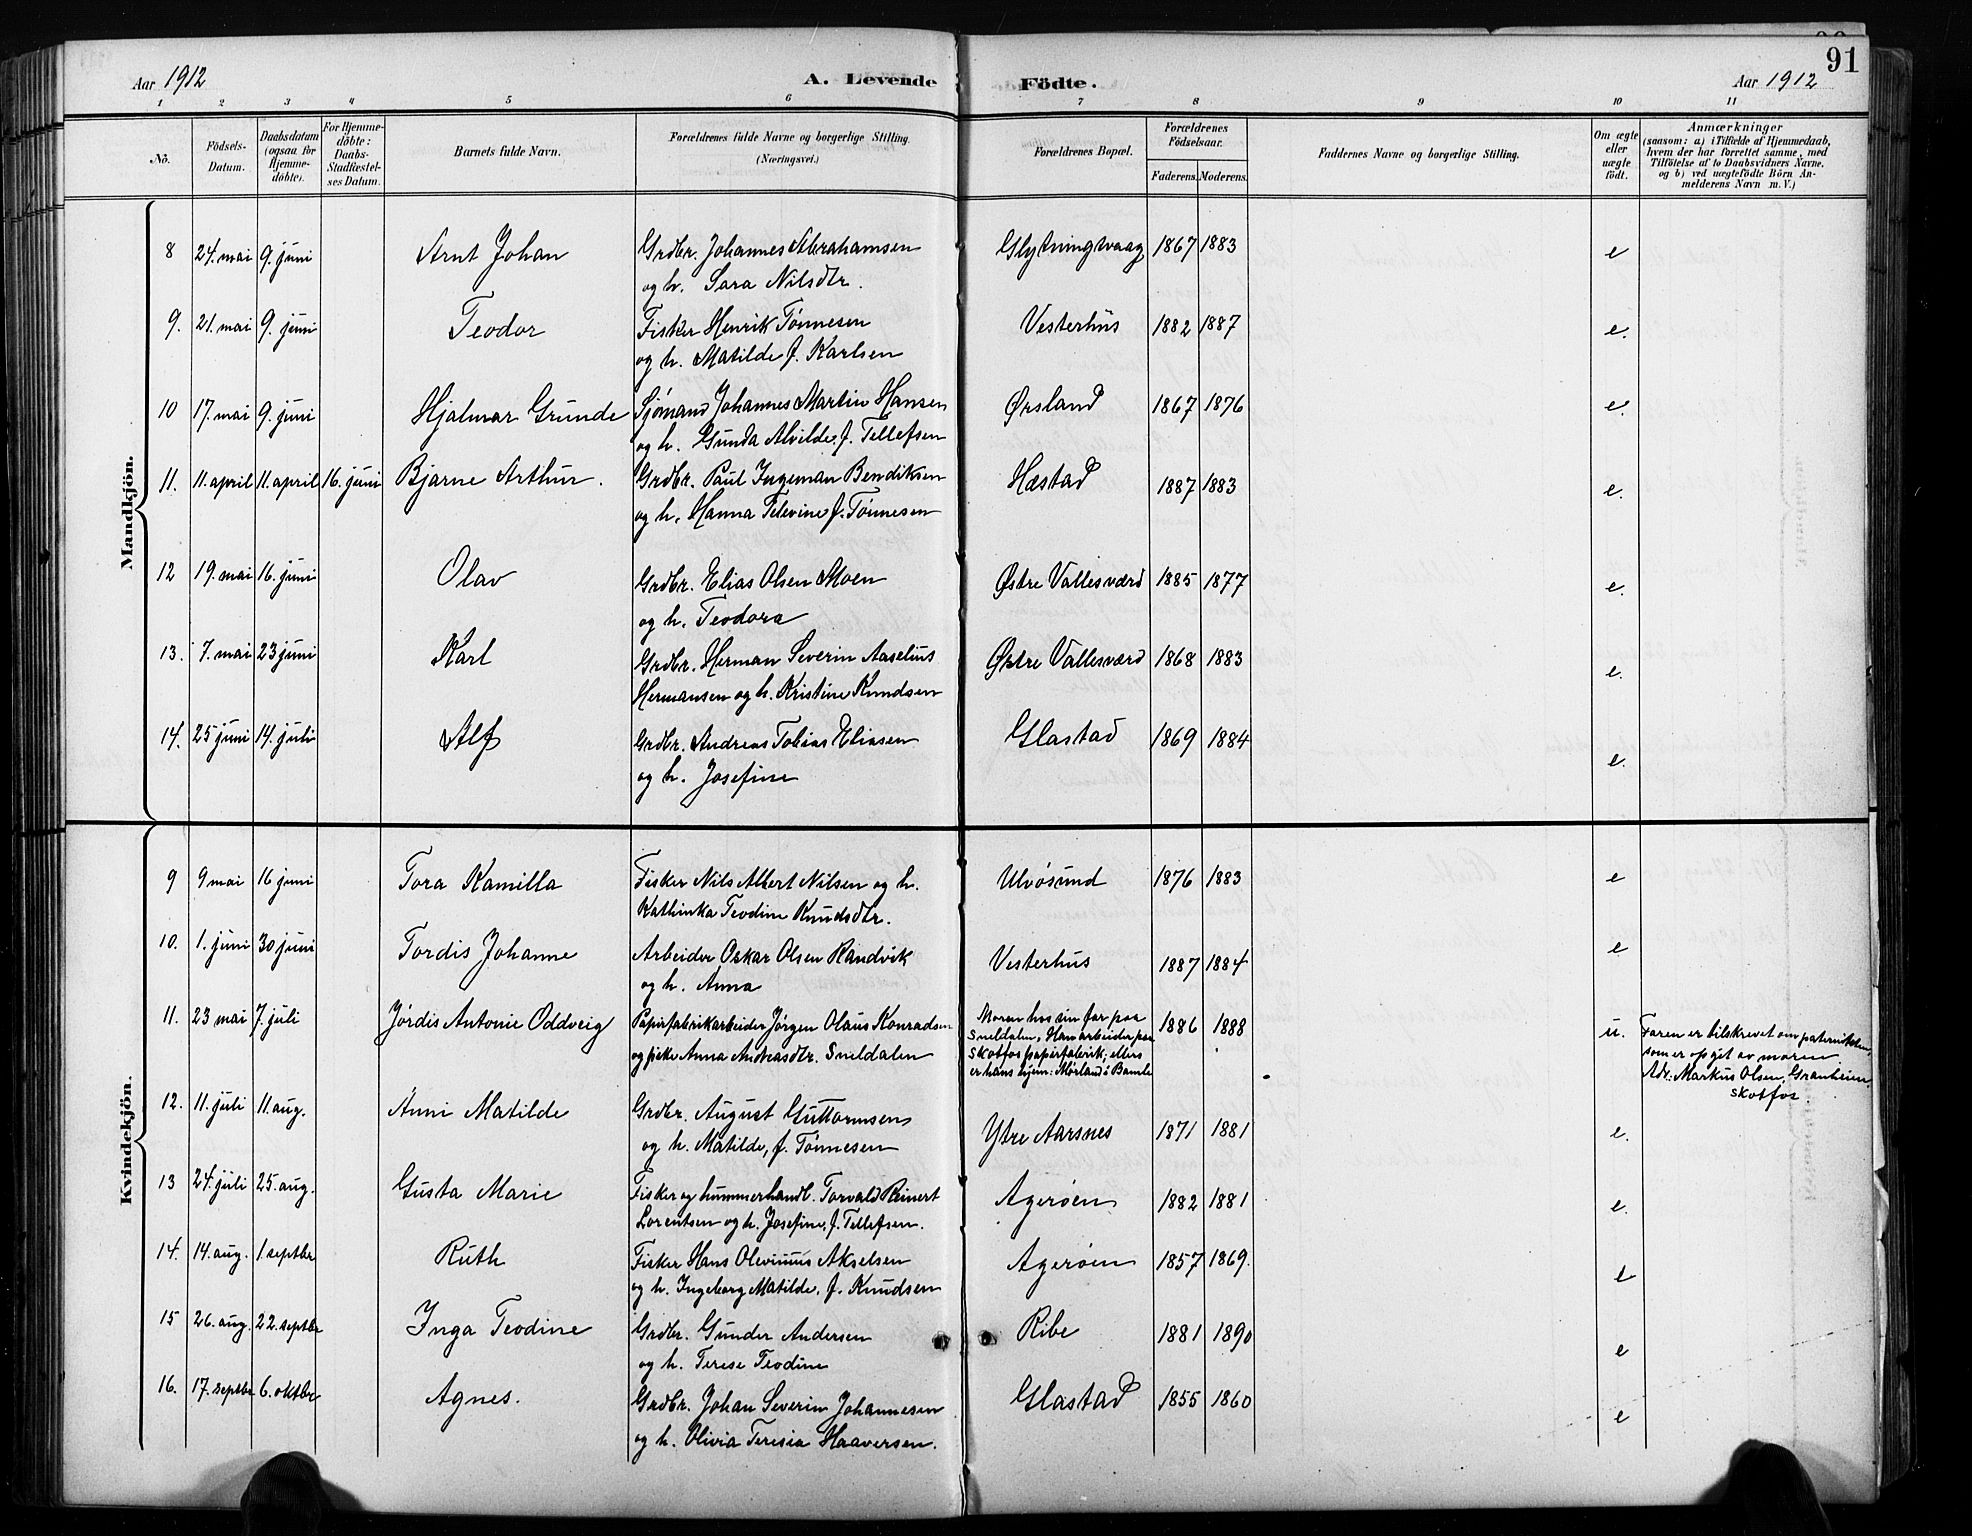 91
Aar 1912 A. Levende Födte. Aar 1912
1 2 3 4 5 6 7 8 9 10 11
No. Födsels-Datum. Daabsdatum (ogsaa for Hjemme-döbte). For Hjemme-döbte: Daabs-Stadfæstel-ses Datum. Barnets fulde Navn. Forældrenes fulde Navne og borgerlige Stilling. (Næringsvei.) Forældrenes Bopæl. Forældrenes Födselsaar. Faderens. Moderens. Faddernes Navne og borgerlige Stilling. Om ægte eller uægte födt. Anmærkninger (saasom: a) i Tilfælde af Hjemmedaab, hvem der har forrettet samme, med Tilföielse af to Daabsvidners Navne, og b) ved uægtefödte Börn An-melderens Navn m. V.)
Mandkjön.
8 24. mai 9. juni Arnt Johan Grdbr. Johannes Abrahamsen Glytningsvaag 1867 1883 e
og h. Sara Nilsdtr.
9. 21. mai 9. juni Teodor Fisker Henrik Tönnesen Vesterhus 1882 1887 e.
og h. Matilde f. Karlsen
10 17. mai 9. juni Hjalmar Grunde Sjömand Johannes Martin Hansen Ørsland 1867 1876 e.
og h. Gunda Alvilde f. Tellefsen
11. 11. april 11. april 16. juni Bjarne Arthur. Grdbr. Paul Ingeman Bendiksen Hæstad 1887 1883 e.
og h. Hanna Televine f. Tönnesen
12 19. mai 16. juni Olav Grdbr. Elias Olsen Moen Østre Vallesværd 1885 1877 e.
og h. Teodora
13. 7. mai 23 juni Karl Grdbr. Herman Severin Aaselius Østre Vallesværd 1868 1883 e.
Hermansen og h. Kristine Knudsen
14. 25 juni 14. juli Alf Grdbr. Andreas Tobias Eliasen Glastad 1869 1884 e.
og h. Josefine
Kvindekjön.
9 9 mai 16 juni Tora Kamilla Fisker Nils Albert Nilsen og h. Ulvösund 1876 1883 e
Kathinka Teodine Knudsdtr.
10. 1. juni 30 juni Tordis Johanne Arbeider Oskar Olsen Randvik Vesterhus 1887 1884 e
og h. Anna
11. 23 mai 7. juli Jördis Antonie Oddveig Papirfabrikarbeider Jörgen Olaus Konradsen Moren hos sin far paa 1886 1888 u. Faren er tilskrevet om paterniteten,
og pike Anna Andreasdtr. Sneldalen Sneldalen, Han arbeider paa som er opgit av moren
Skotfos papirfabrik, ellers Adr: Markus Olsen, Granheim,
er hans hjem: Mörland i Bamle Skotfos.
12. 11. juli 11. aug. Anni Matilde Grdbr. August Guttormsen Ytre Aarsnes 1871 1881 e.
og h. Matilde, f. Tönnesen
13 24. juli 25. aug. Gusta Marie Fisker og hummerhandl. Torvald Reinert Ageröen 1882 1881 e.
Lorentsen og h. Josefine, f. Tellefsen.
14. 14. aug. 1. septbr Ruth Fisker Hans Olevinus Akselsen Ageröen 1857 1869. e
og h. Ingeborg Matilde, f. Knudsen
15 26. aug. 22. septbr Inga Teodine Grdbr. Gunder Andersen Ribe 1881 1890 e
og h. Terese Teodine
16. 17. septbr 6. oktbr Agnes. Grdbr. Johan Severin Johannesen Glastad 1855 1860 e
og h. Olivia Teresia Haaversen.